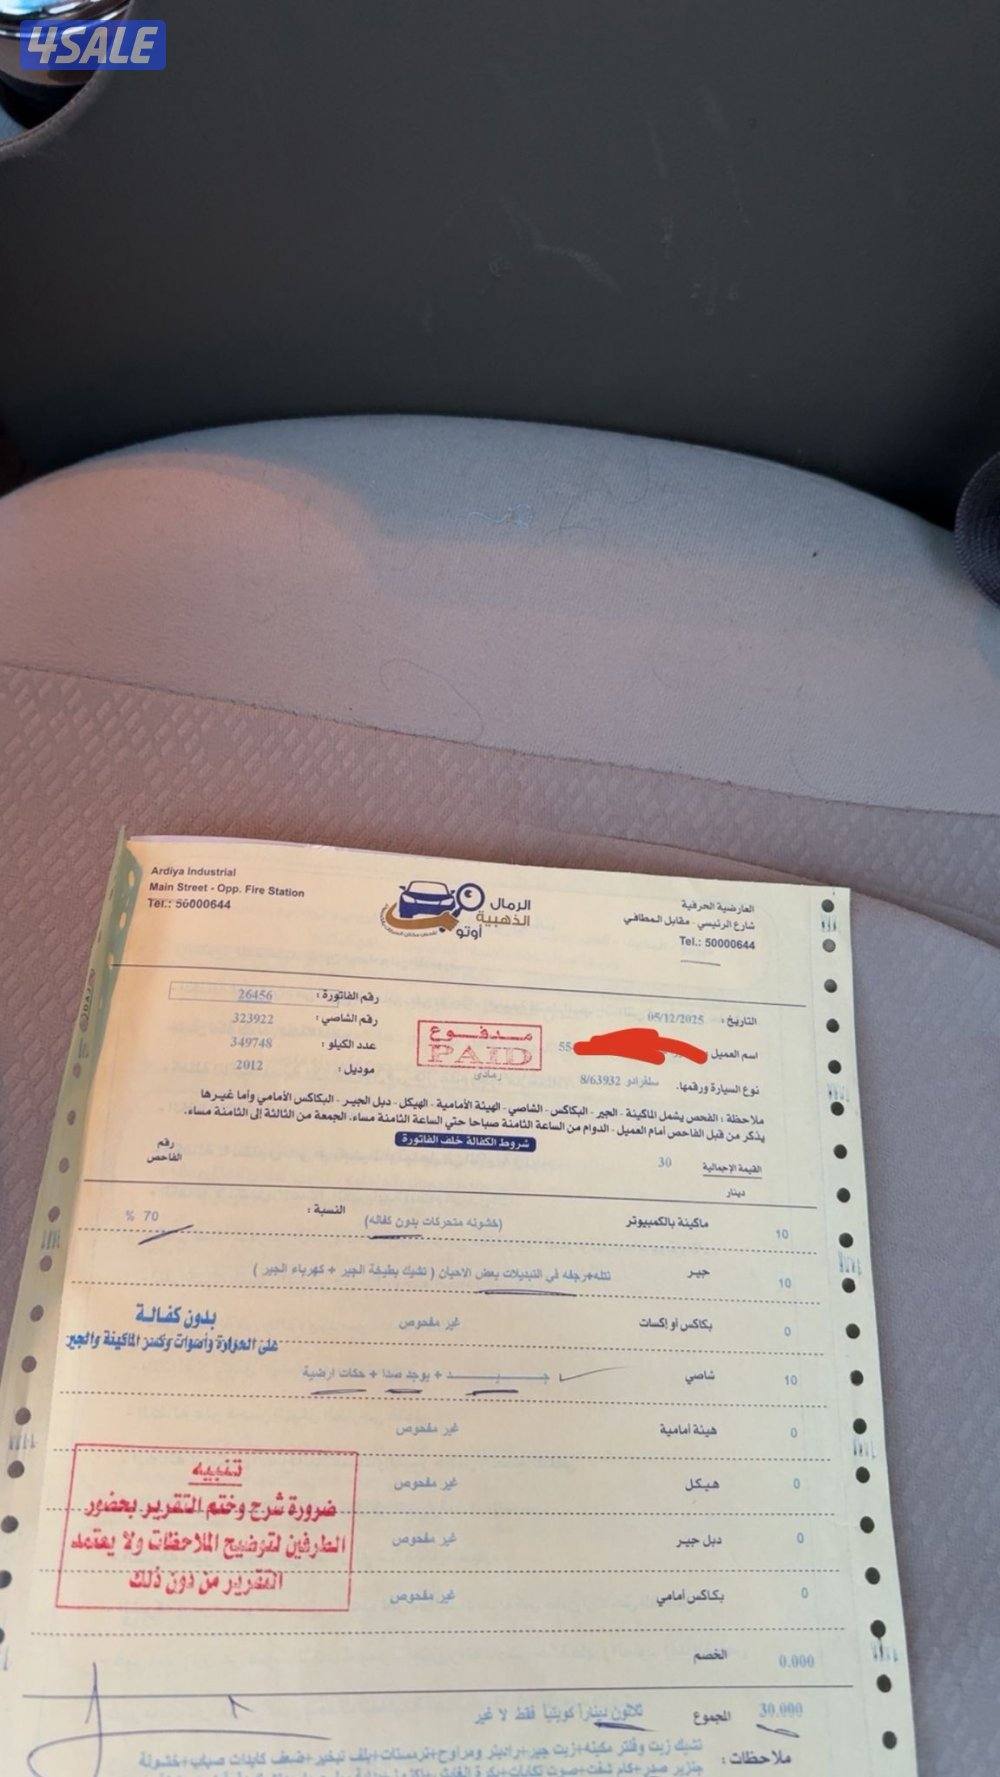 4SALE
Ardiya Industrial
Main Street - Opp. Fire Station
Tel.: 50000644
الرمال
الذهبية
أوتو
العارضية الحرفية
شارع الرئيسي - مقابل المطافي
Tel.: 50000644
التاريخ : 05/12/2025
رقم الفاتورة : 26456
اسم العميل 55
رقم الشاصي : 323922
مدفوع
PAID
عدد الكيلو : 349748
نوع السيارة ورقمها. سلفرادو 8/63932
رمادي
موديل : 2012
ملاحظة : الفحص يشمل الماكينة - الجير - البكاكس - الشاصي - الهيئة الأمامية - الهيكل - دبل الجير - البكاكس الأمامي وأما غيرها
يذكر من قبل الفاحص أمام العميل - الدوام من الساعة الثامنة صباحا حتي الساعة الثامنة مساء، الجمعة من الثالثة إلى الثامنة مساء.
شروط الكفالة خلف الفاتورة
القيمة الإجمالية 30
دينار
رقم
الفاحص
10 ماكينة بالكمبيوتر (خشونه متحركات بدون كفاله) النسبة : 70 %
10 جير نتله+رجفه في التبديلات بعض الاحيان ( تشيك بطيخة الجير + كهرباء الجير )
0 بكاكس أو إكسات غير مفحوص
بدون كفالة
على الحرارة وأصوات وكسر الماكينة والجير
10 شاصي جـــيـــد + يوجد صدا + حكات ارضية
0 هيئة أمامية غير مفحوص
0 هيكل غير مفحوص
0 دبل جير غير مفحوص
0 بكاكس أمامي غير مفحوص
تنبيه
ضرورة شرح وختم التقرير بحضور
الطرفين لتوضيح الملاحظات ولا يعتمد
التقرير من دون ذلك
0.000 الخصم
30.000 المجموع ثلاثون ديناراً كويتياً فقط لا غير
ملاحظات : تشيك زيت وفلتر مكينه+زيت جير+راديتر ومراوح+ترمستات+بلف تبخير+ضعف كابدات صباب+خشونة
جنزير صدر+كام شفت+صوت تكايات+بكرة